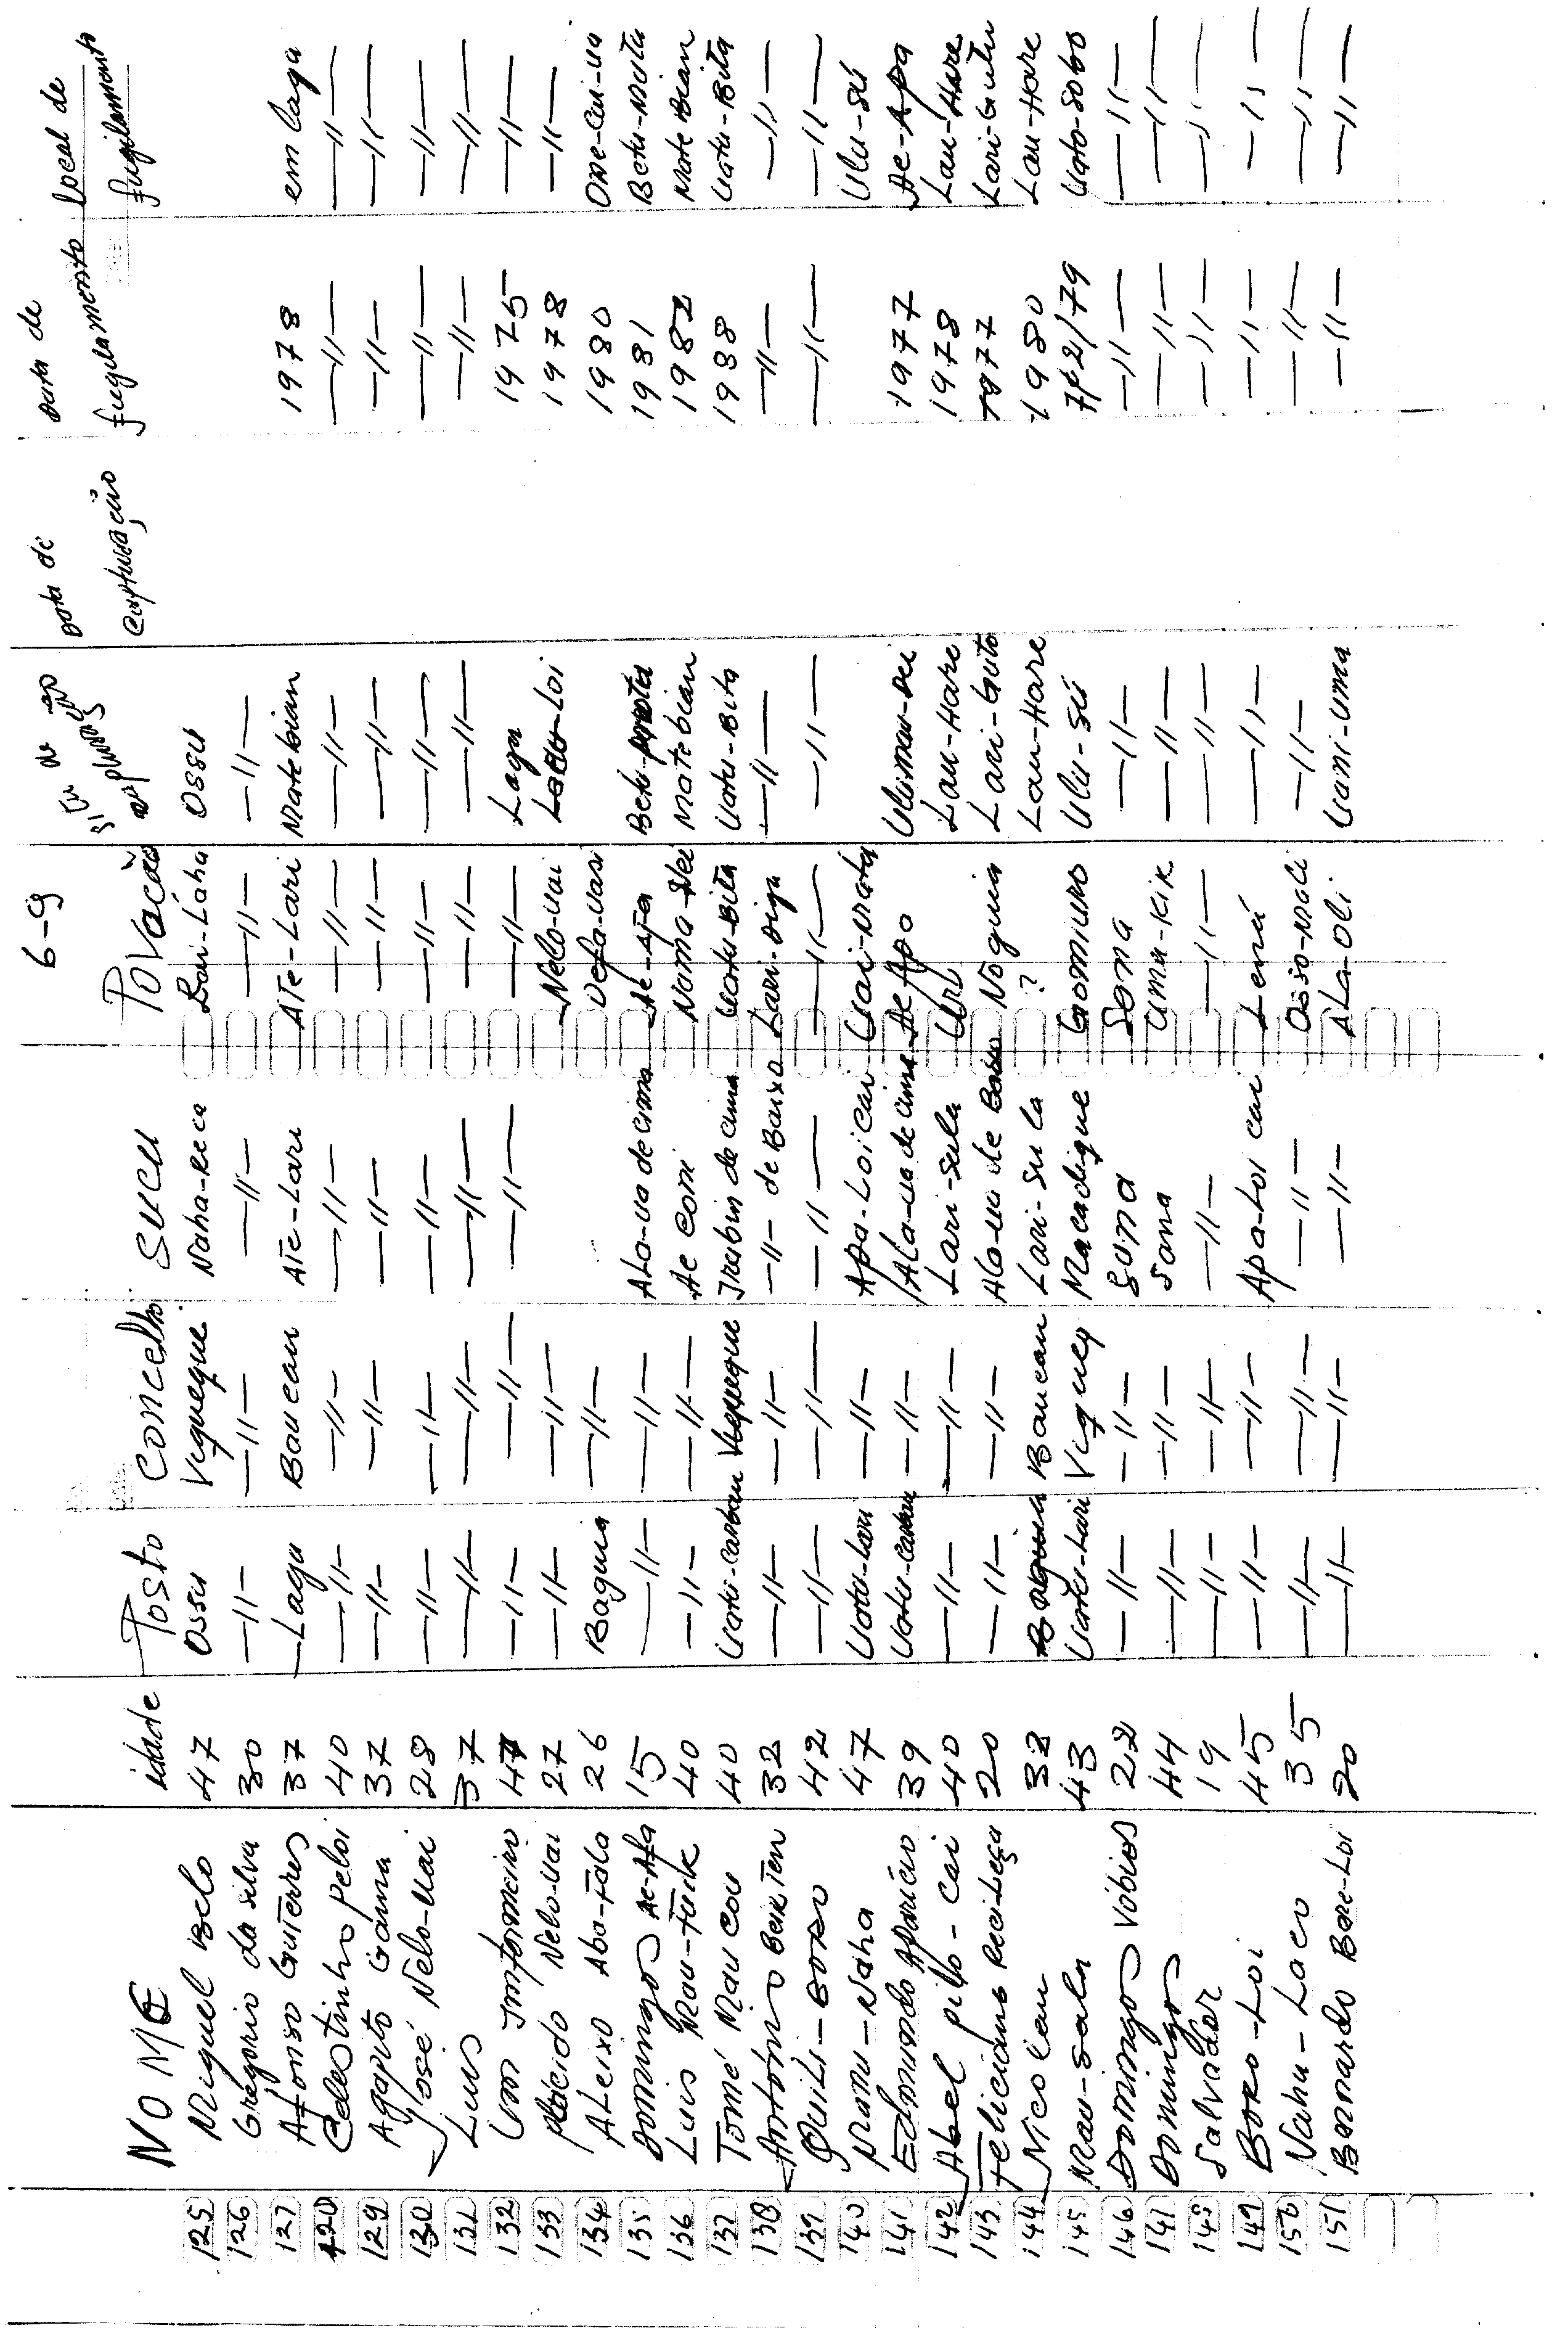 6-9
NOME idade Posto Concelho Sucu Povacão Data de capturação Data de fuzilamento Local de fuzilamento
125 Miguel Belo 47 Ossu Viqueque Naha-Reca Bui-Laha Ossu
126 Gregório da Silva 30 —11— —11— —11— —11— —11—
127 Afonso Guterres 37 Laga Baucau Ate-Lari Ate-Lari Matebian 1978 em Laga
128 Celestinho Peloi 40 —11— —11— —11— —11— —11— —11— —11—
129 Agapito Gama 37 —11— —11— —11— —11— —11— —11— —11—
130 José Nelo-Uai 28 —11— —11— —11— —11— —11— —11— —11—
131 Luis 37 —11— —11— —11— —11— —11— —11— —11—
132 Um Imformeiro 47 —11— —11— —11— —11— Laga 1975 —11—
133 Plácido Nelo-Uai 27 —11— —11— Nelo-Uai Loi 1978 —11—
134 Aleixo Abo-Fala 26 Baguia —11— Defa-Uasi 1980 One-Cai-ua
135 Domingos Ae-Afa 15 —11— —11— Alo-ua de cima Ae-Afa 1981
136 Luis Mau-Tuik 40 —11— —11— Ae Coni Matebian 1982 Mate Bian
137 Tomé Mau Cou 40 Uatu-Carbau Viqueque Irabin de cima Uatu-Bita Uatu-Bita 1988 Uatu-Bita
138 António Beik Ten 32 —11— —11— —11— de Baixo Lari-Diga —11— —11— —11—
139 Quili-Boro 42 —11— —11— —11— —11— —11— —11— —11—
140 Manu-Naha 47 Uatu-Lari —11— Apa-Loi Cai Uai-Mata Ulu-Sú
141 Edmundo Aparício 39 Uatu-Carbau —11— Ala-ua de cima Ae Apa 1977 Ae-Apa
142 Abel Cai 40 —11— —11— Lari-Sula Lau-Hare 1978 Lau-Hare
143 Feliciano 20 —11— —11— Alo-ua de Baixo Noguia Lari-Guto 1977 Lari-Gutu
144 Nicolau 32 Baguia Baucau Lari-Sula ? Lau-Hare 1980 Lau-Hare
145 Mau-Sala 43 Uatu-Lari Viqueq Macadique Gomiuro Ulu-Sú 7/2/79 Uato-Sobo
146 Domingos Vóbios 22 —11— —11— Sona Sona —11— —11— —11—
147 Domingos 44 —11— —11— Sana Uma-Kik —11— —11— —11—
148 Salvador 19 —11— —11— —11— —11— —11— —11— —11—
149 Boro-Loi 45 —11— —11— Apa-Loi cai Lená —11— —11— —11—
150 Nahu-Laco 35 —11— —11— —11— Osso-Mali —11— —11— —11—
151 Bernardo Bore-Loi 20 —11— —11— —11— Ala-Oli Uani-Uma —11— —11—